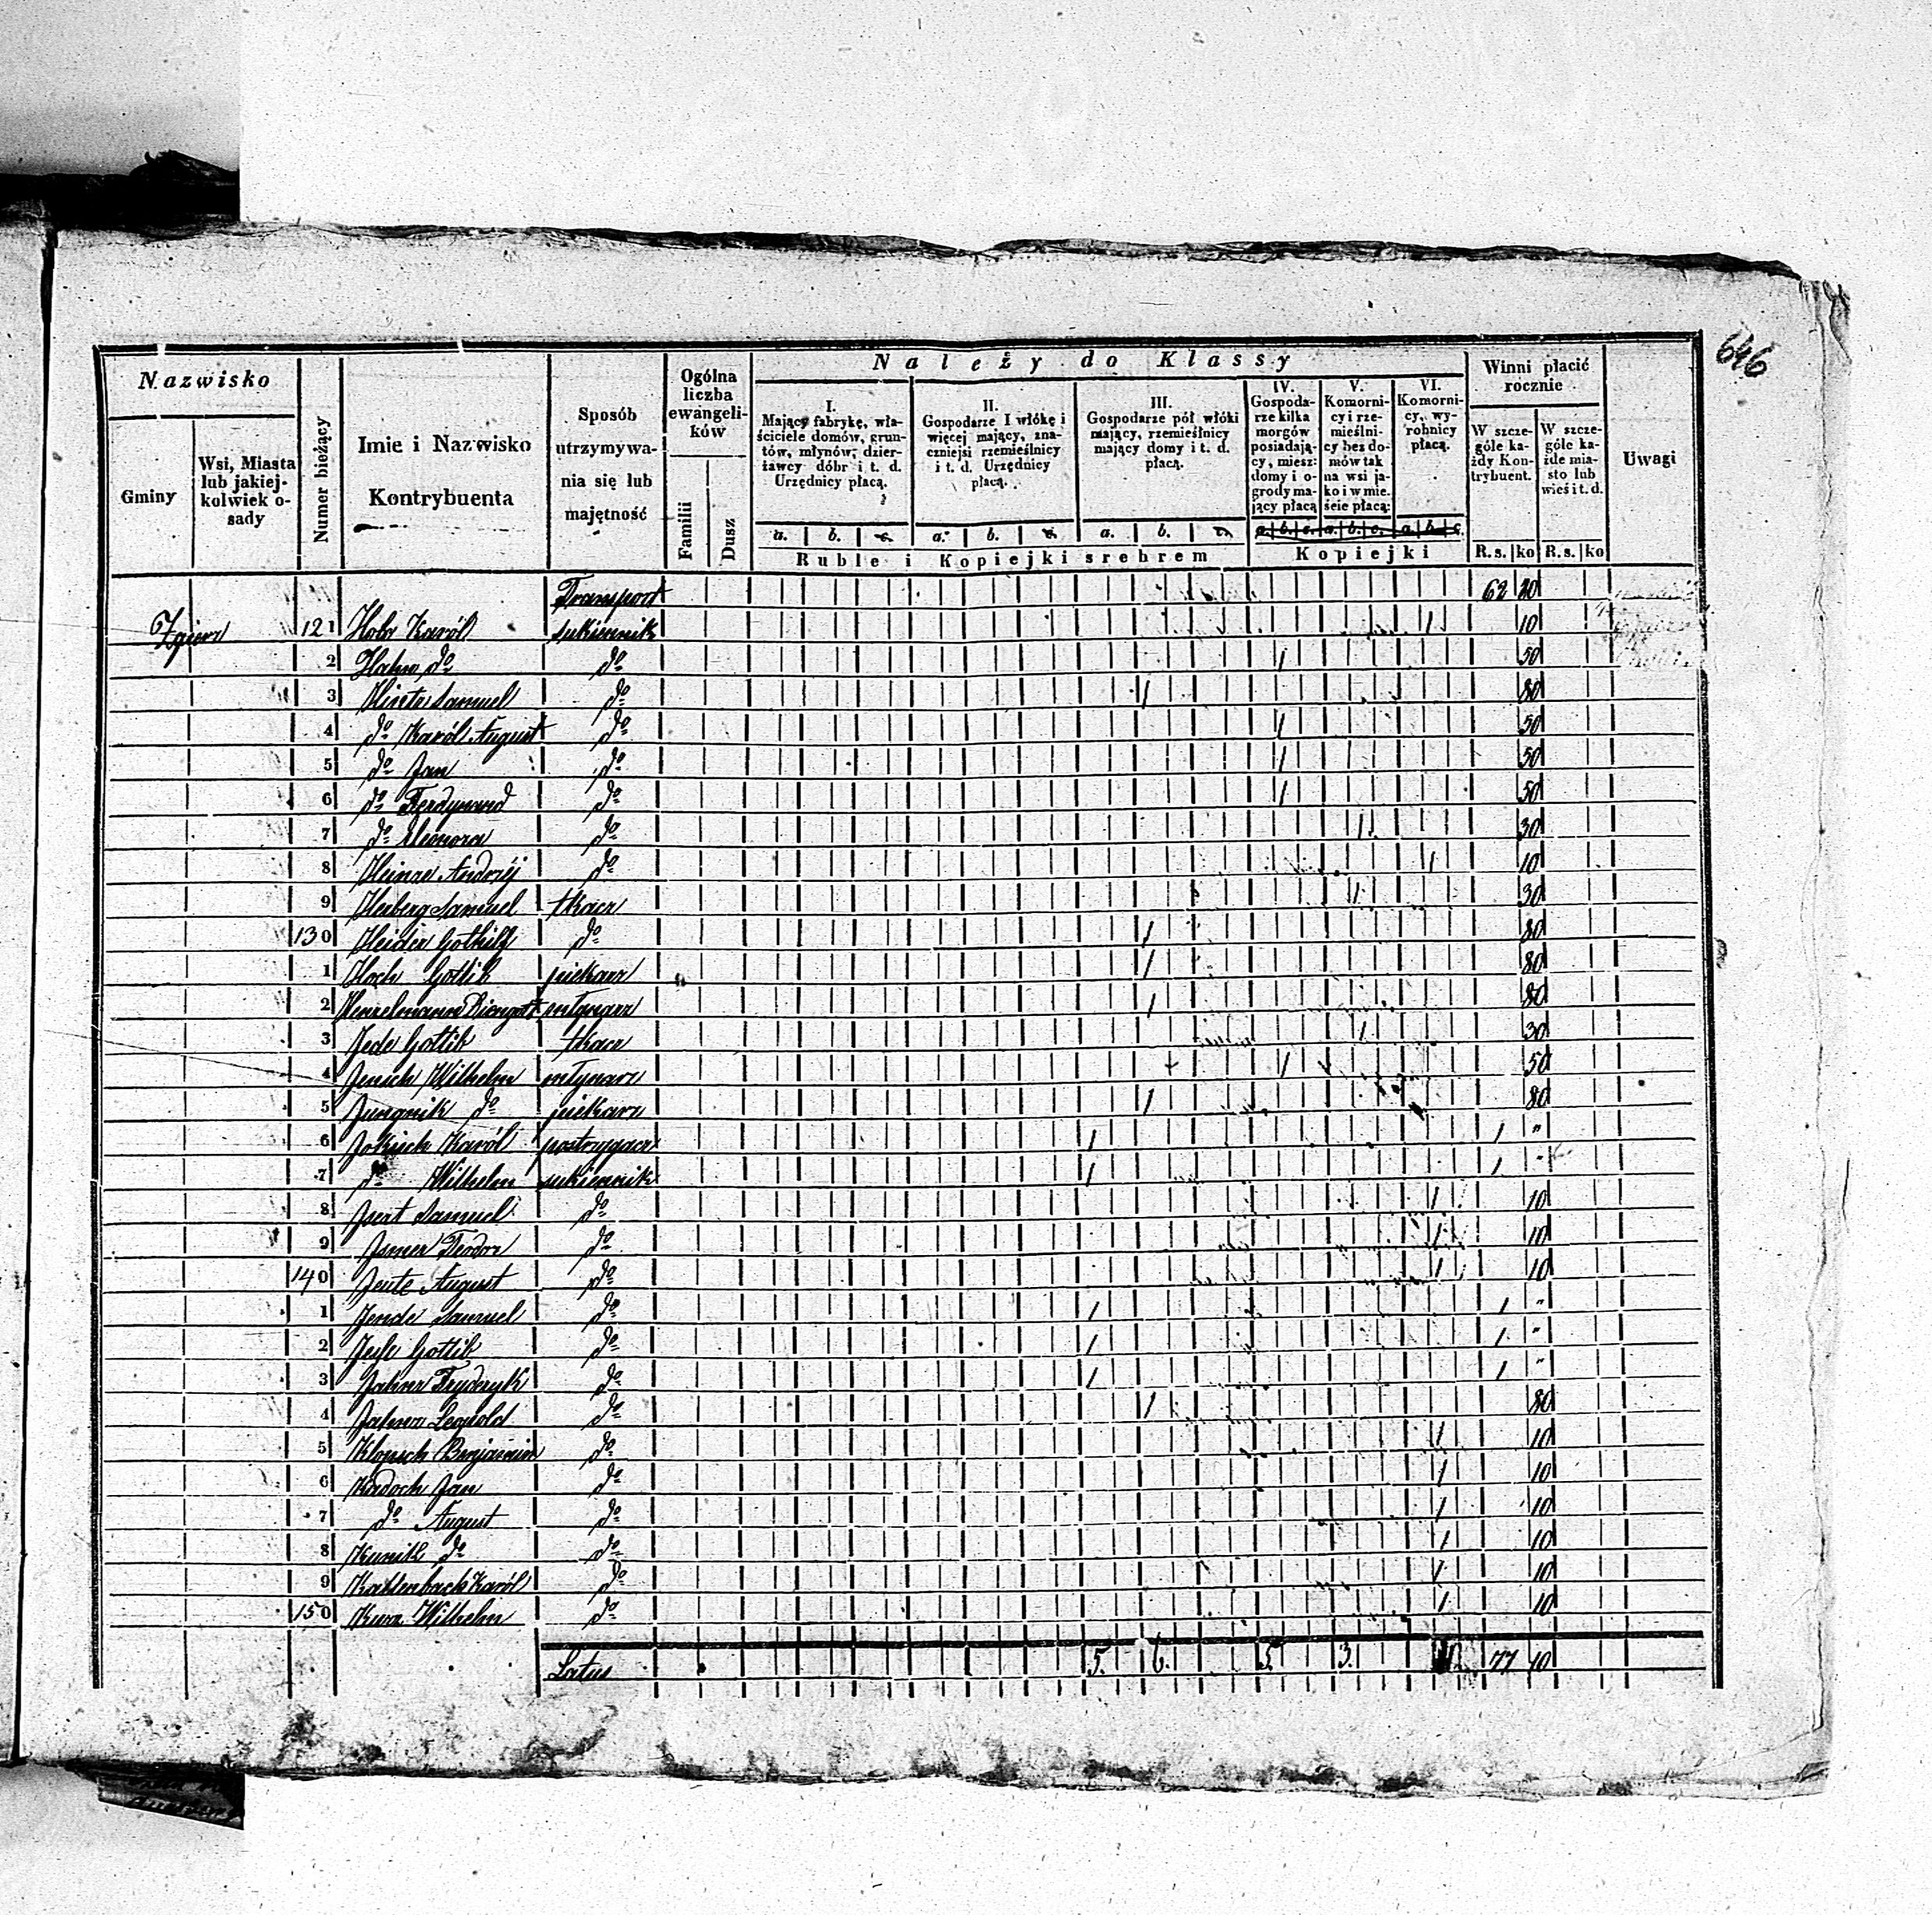 646
Nazwisko
Gminy
Wsi, Miasta lub jakiejkolwiek osady
Numer bieżący
Imie i Nazwisko Kontrybuenta
Sposób utrzymywania się lub majętność
Ogólna liczba ewangelików
Familii
Dusz
Należy do Klassy
I. Mający fabrykę, właściciele domów, gruntów, młynów, dzierżawcy dóbr i t. d. Urzędnicy płacą.
II. Gospodarze I włókę i więcej mający, znaczniejsi rzemieślnicy i t. d. Urzędnicy płacą.
III. Gospodarze pół włóki mający, rzemieślnicy mający domy i t. d. płacą.
IV. Gospodarze kilka morgów posiadający, miesz: domy i ogrody mający płacą
V. Komornicy i rzemieślnicy bez domów tak na wsi jako i w mieście płacą:
VI. Komornicy, wyrobnicy płacą.
a. b. c. a. b. c. a. b. c. a. b. c. a. b. c. a. b. c.
Ruble i Kopiejki srebrem
Kopiejki
Winni płacić rocznie
W szczególe każdy Kontrybuent.
W szczególe każde miasto lub wieś i t. d.
R. s. ko R. s. ko
Uwagi
Transport 62 20
Zgierz 121 Karól sukiennik 1 10
2 Hahn do do 1 50
3 Samuel do 1 80
4 do Karól August do 1 50
5 do Jan do 1 50
6 do Ferdynand do 1 50
7 do Eleonora do 1 30
8 Heinze Andrzéj do 1 10
9 Herberg Samuel tkacz 1 30
130 Heider Gothilf do 1 80
1 Hoch Gottlib piekarz 1 80
2 młynarz 1 80
3 Jede Gottlib tkacz 1 30
4 Jenich Wilhelm młynarz 1 50
5 Jungnik do piekarz 1 80
6 Jokisch Karól postrzygacz 1 1 "
7 do Wilhelm sukiennik 1 1 "
8 Samuel do 1 10
9 Teodor do 1 10
140 Jente August do 1 10
1 Jende Samuel do 1 1 "
2 Gottlib do 1 1 "
3 Jahnz Fryderyk do 1 1 "
4 Leopold do 1 80
5 Klopsch Benjamin do 1 10
6 Kadoch Jan do 1 10
7 do August do 1 10
8 Kunik do do 1 10
9 Kaltenbach Karól do 1 10
150 Kurz Wilhelm do 1 10
Latus 5. 6. 5. 3. 77 10